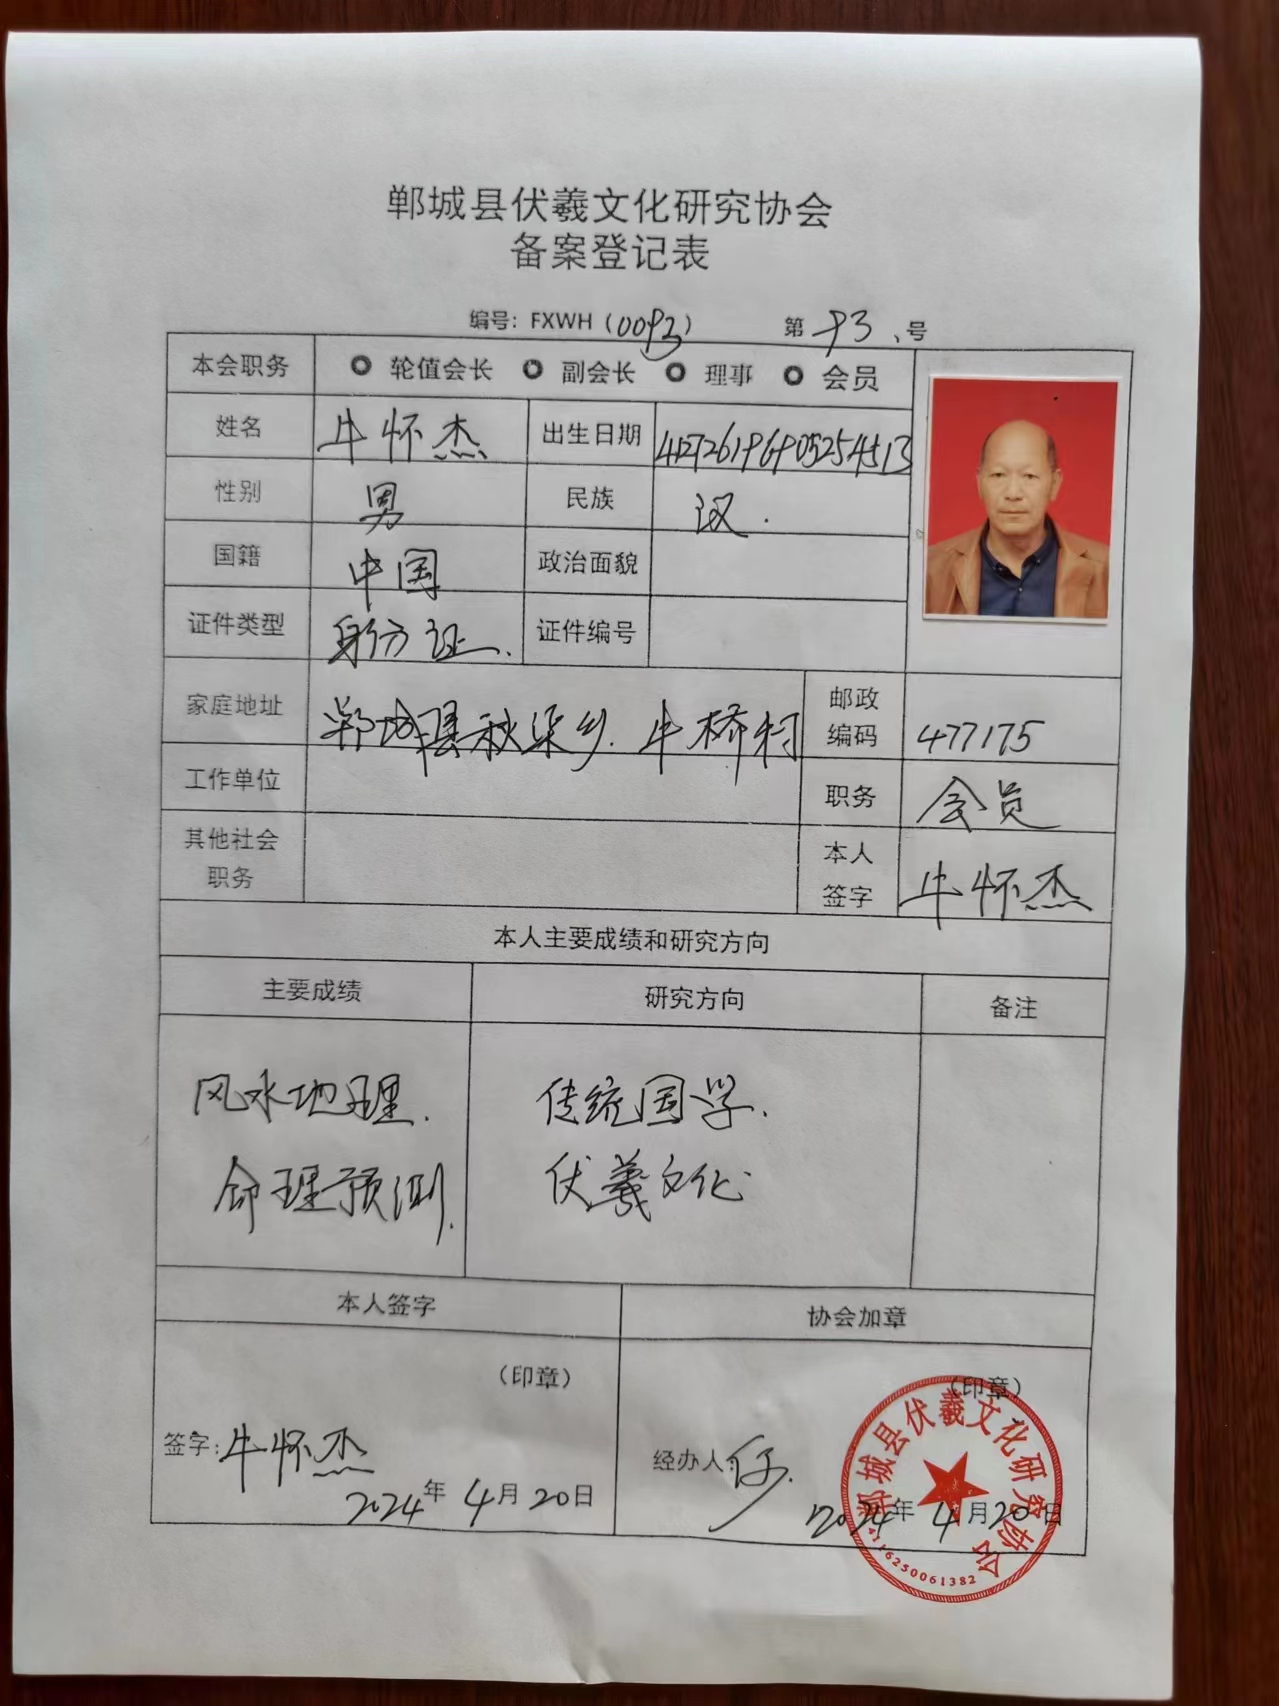 郸城县伏羲文化研究协会
备案登记表
编号：FXWH（0093） 第 93 号
本会职务 轮值会长 副会长 理事 会员
姓名 牛怀杰 出生日期 412726196905254513
性别 男 民族 汉
国籍 中国 政治面貌
证件类型 身份证 证件编号
家庭地址 郸城县秋渠乡.牛桥村 邮政编码 477175
工作单位 职务 会员
其他社会职务 本人签字 牛怀杰
本人主要成绩和研究方向
主要成绩 研究方向 备注
风水地理. 传统国学.
命理预测. 伏羲文化
本人签字 协会加章
（印章） （印章）
签字：牛怀杰 经办人：
2024年 4月 20日 2024年 4月 20日
郸城县伏羲文化研究协会
4116250061382